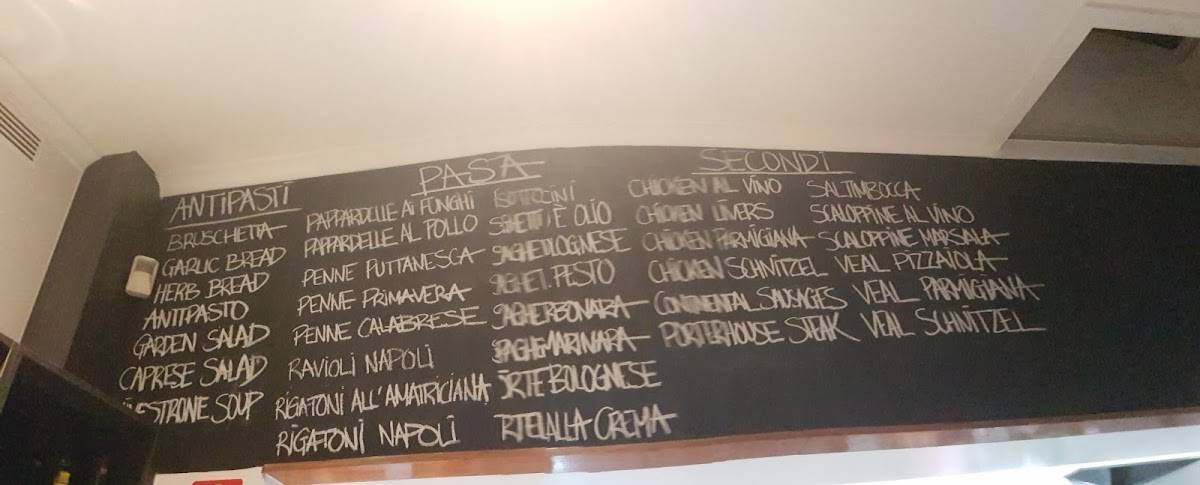 ANTIPASTI
BRUSCHETTA
GARLIC BREAD
HERB BREAD
ANTIPASTO
GARDEN SALAD
CAPRESE SALAD
SOUP
PASTA
PAPPARDELLE AI FUNGHI
PAPPARDELLE AL POLLO
PENNE PUTTANESCA
PENNE PRIMAVERA
PENNE CALABRESE
RAVIOLI NAPOLI
RIGATONI ALL'AMATRICIANA
RIGATONI NAPOLI
E OLIO
PESTO
BOLOGNESE
ALLA CREMA
SECONDI
CHICKEN AL VINO
CHICKEN LIVERS
CHICKEN PARMIGIANA
CHICKEN SCHNITZEL
CONTINENTAL SAUSAGES
PORTERHOUSE STEAK
SALTIMBOCCA
SCALOPPINE AL VINO
SCALOPPINE MARSALA
VEAL PIZZAIOLA
VEAL PARMIGIANA
VEAL SCHNITZEL